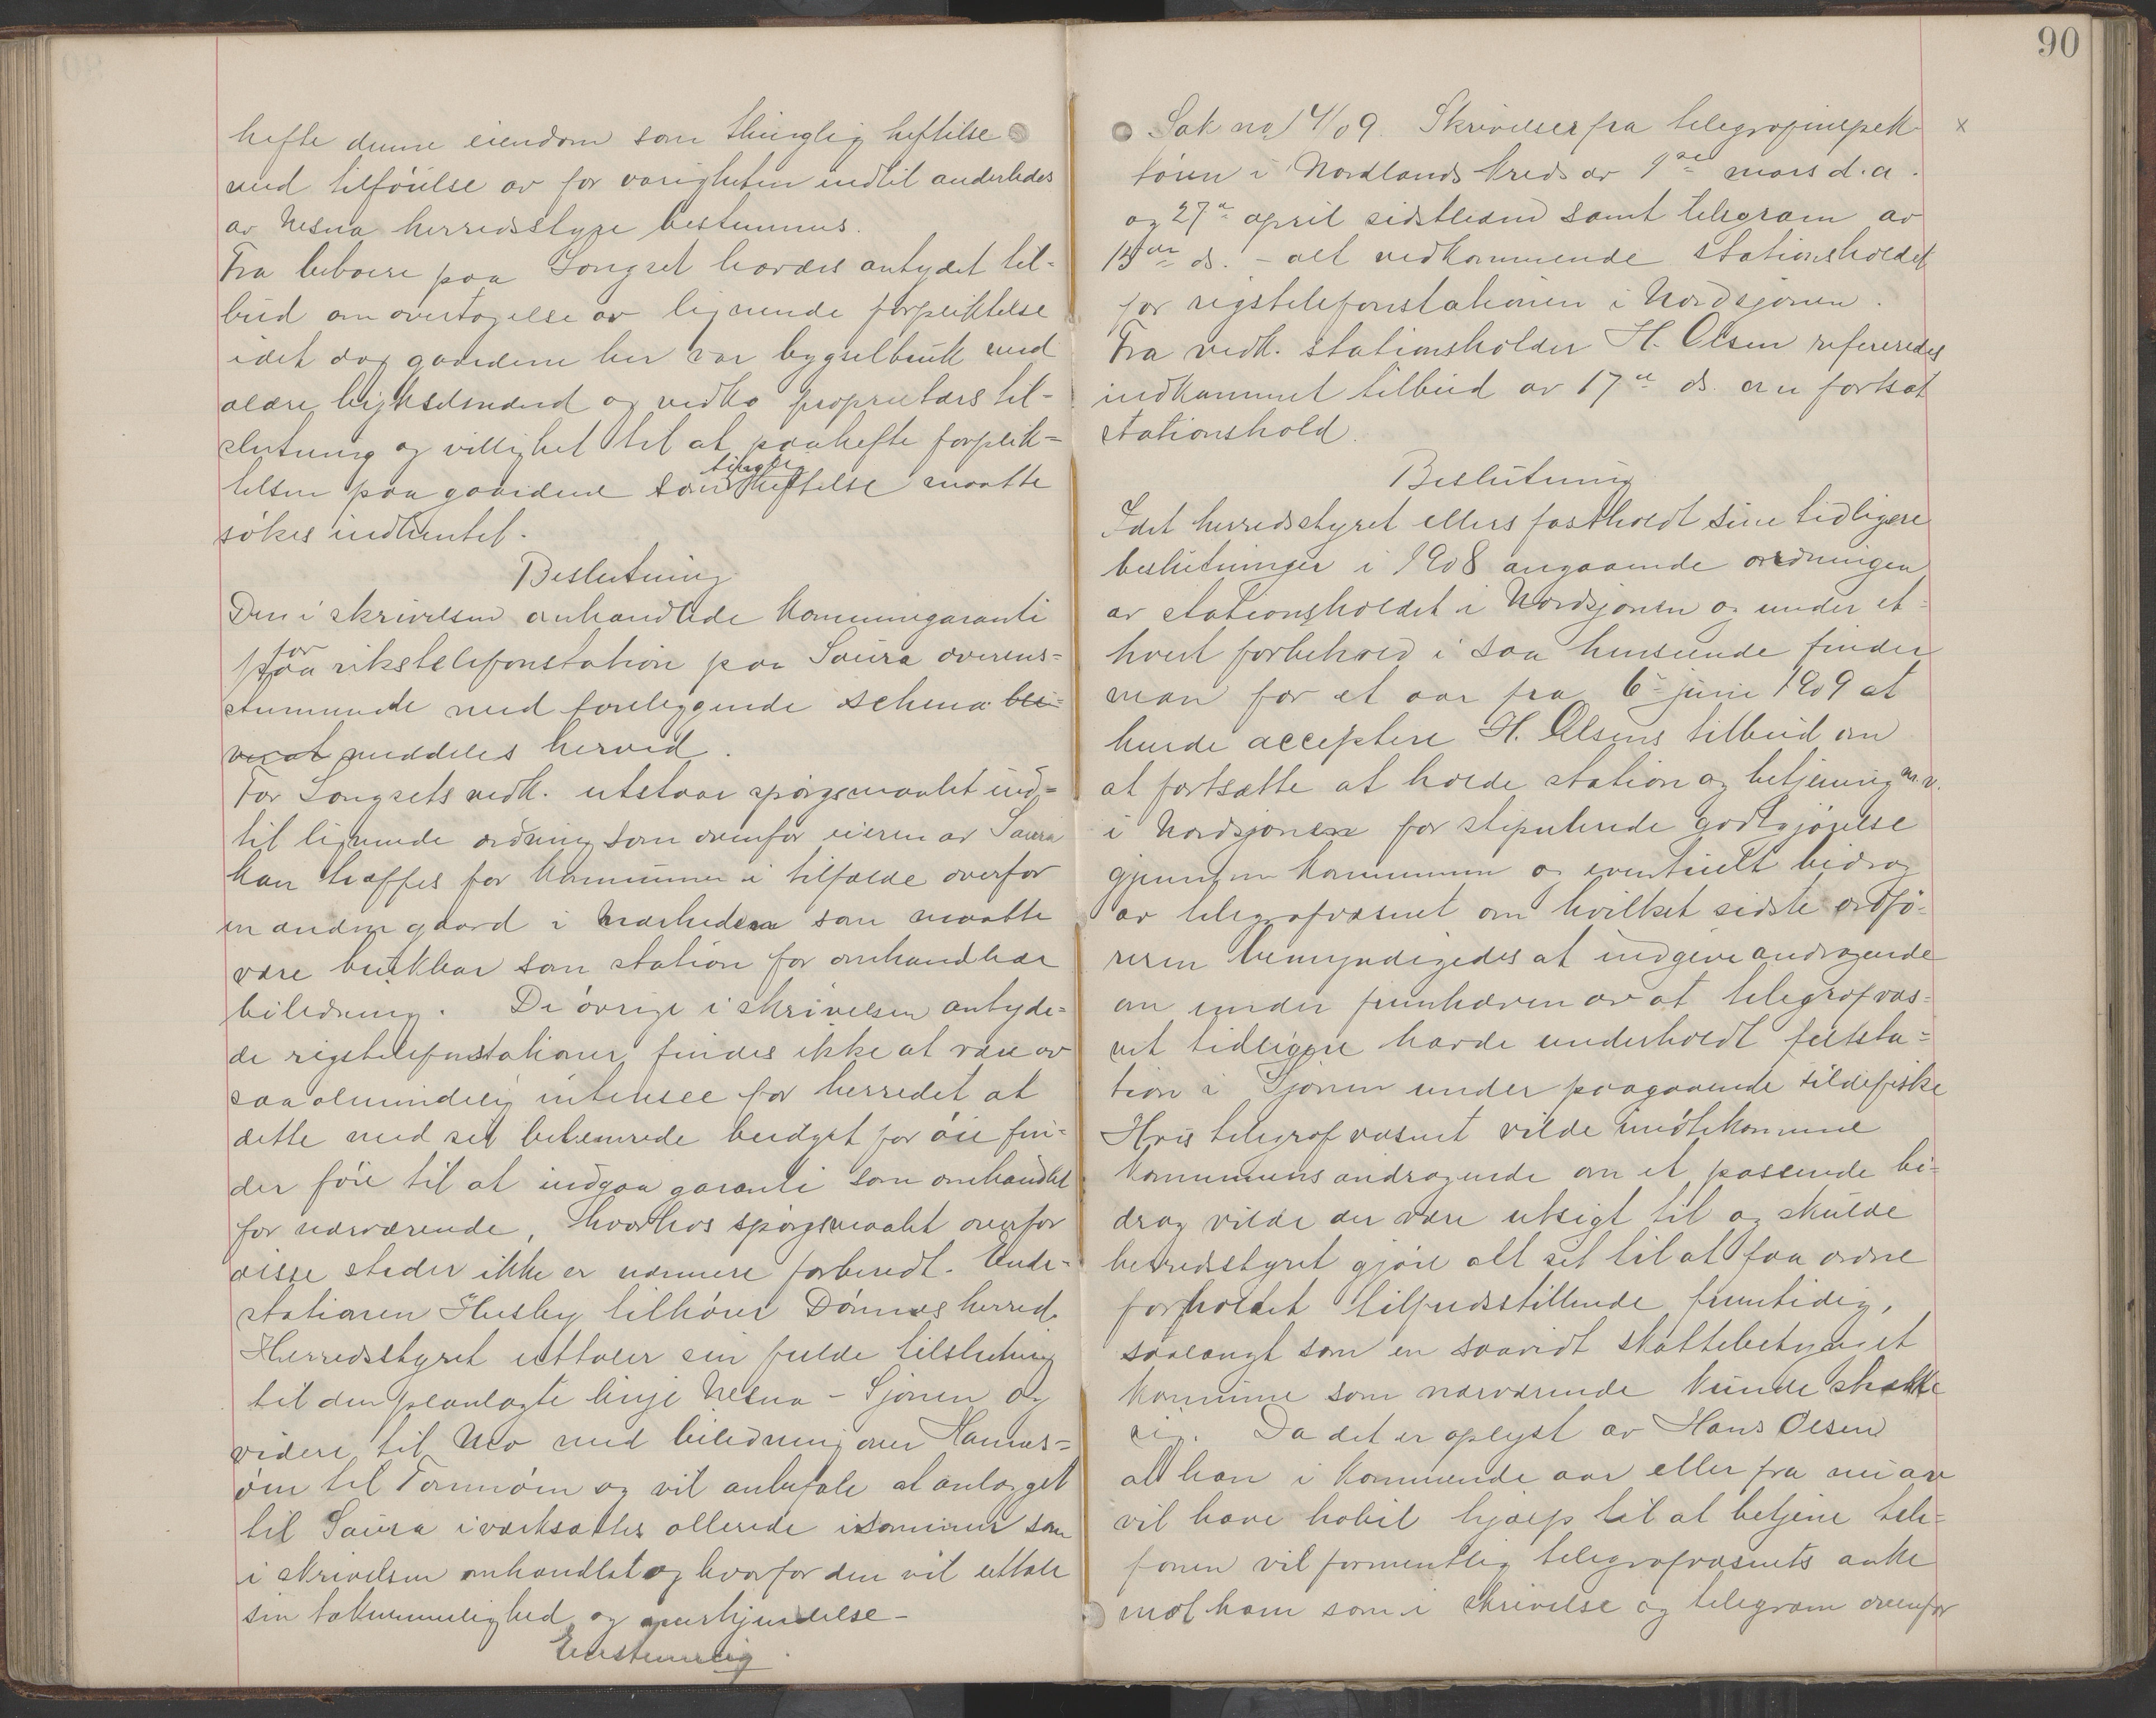 hefte denne eiendom som thinglig heftelse
med tilföielse av for varigheten indtil anderledes
av Nesna herredsstyre bestemmes.
Fra beboere paa Longset havdes antydet til-
bud om overtagelse av lignende forpliktelse
idet dog gaardene her var bygselbruk med
ældre bygselmænd og vedko proprietærs til-
slutning og villighet til at paahefte forplik=
telsen paa gaardene som tinglig heftelse maatte
sökes indhentet.
Beslutning
Den i skrivelsen omhandlede kommunegaranti
for rikstelefonstation paa Saura overens=
stemmende med foreliggende schema bli=
vis at meddeles herved.
For Longsets vedk. utstaar spörgsmaalet ind=
til lignende ordning som ovenfor eieren av Saura
kan træffes for kommunen i tilfælde overfor
en anden gaard i nærheden som maatte
være brukbar som station for omhandlede
biledning. De övrige i skrivelsen antyde=
de rigstelefonstationer findes ikke at være av
saa almindelig interesse for herredet at
dette med sit betrængte budget for öie fin=
der föie til at indgaa garanti som omhandlet
for nærværende, hvorhos spörgsmaalet overfor
disse steder ikke er nærmere forberedt. Ende=
stationen Husby tilhörer Dönnes herred.
Herredsstyret uttaler sin fulde tilslutning
til den planlagte linje Nesna - Sjonen og
videre til Mo med biledning over Hannes=
öen til Tomnöen og vil anbefale at anlægget
til Saura iværksættes allerede i sommer som
i skrivelsen omhandlet og hvorfor den vil uttale
sin taknemmelighed og anerkjendelse -
Enstemmig.
90
Sak no 14/09. Skrivelser fra telegrafinspek- x
tören i Nordlands kreds av 9de mars d.a.
og 27de april sidstleden samt telegram av
15de ds. - alt vedkommende stationsholdet
for rigstelefonstationen i Nordsjonen.
Fra vedk. stationsholder H. Olsen refereredes
indkommet tilbud av 17de ds. om fortsat
stationshold.
Beslutning
Idet herredsstyret ellers fastholdt sine tidligere
beslutninger i 1908 angaaende ordningen
av stationsholdet i Nordsjonen og under et-
hvert forbehold i saa henseende finder
man for et aar fra 6te juni 1909 at
burde acceptere H. Olsens tilbud om
at fortsætte at holde station og betjening m.v.
i Nordsjonen for stipulerede godtgjörelse
gjennem kommunen og eventuelt bidrag
av telegrafvæsnet om hvilket sidste ordfö-
reren bemyndigedes at indgive andragende
om under fremhæven av at telegrafvæs=
net tidligere havde underholdt feltsta=
tion i Sjonen under paagaaende sildefiske
Hvis telegrafvæsnet vilde imötekomme
kommunens andragende om et passende bi-
drag vilde der være utsigt til og skulde
herredsstyret gjöre alt sit til at faa ordne
forholdet tilfredsstillende fremtidig,
saalangt som en saavidt skattebetynget
kommune som nærværende kunde strække
sig. Da det er oplyst av Hans Olsen
at han i kommende aar eller fra nu av
vil have habil hjælp til at betjene tele=
fonen vil formentlig telegrafvæsnets anke
mot ham som i skrivelse og telegram ovenfor